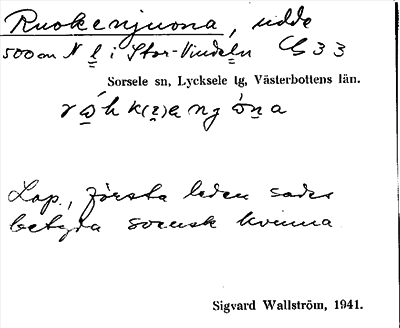 Ruokenjuona, udde
500 m N l i Stor-Vindeln G 3 3
Sorsele sn, Lycksele lg, Västerbottens län.
Lap., första leden sades
betyda svensk kvinna
Sigvard Wallström, 1941.